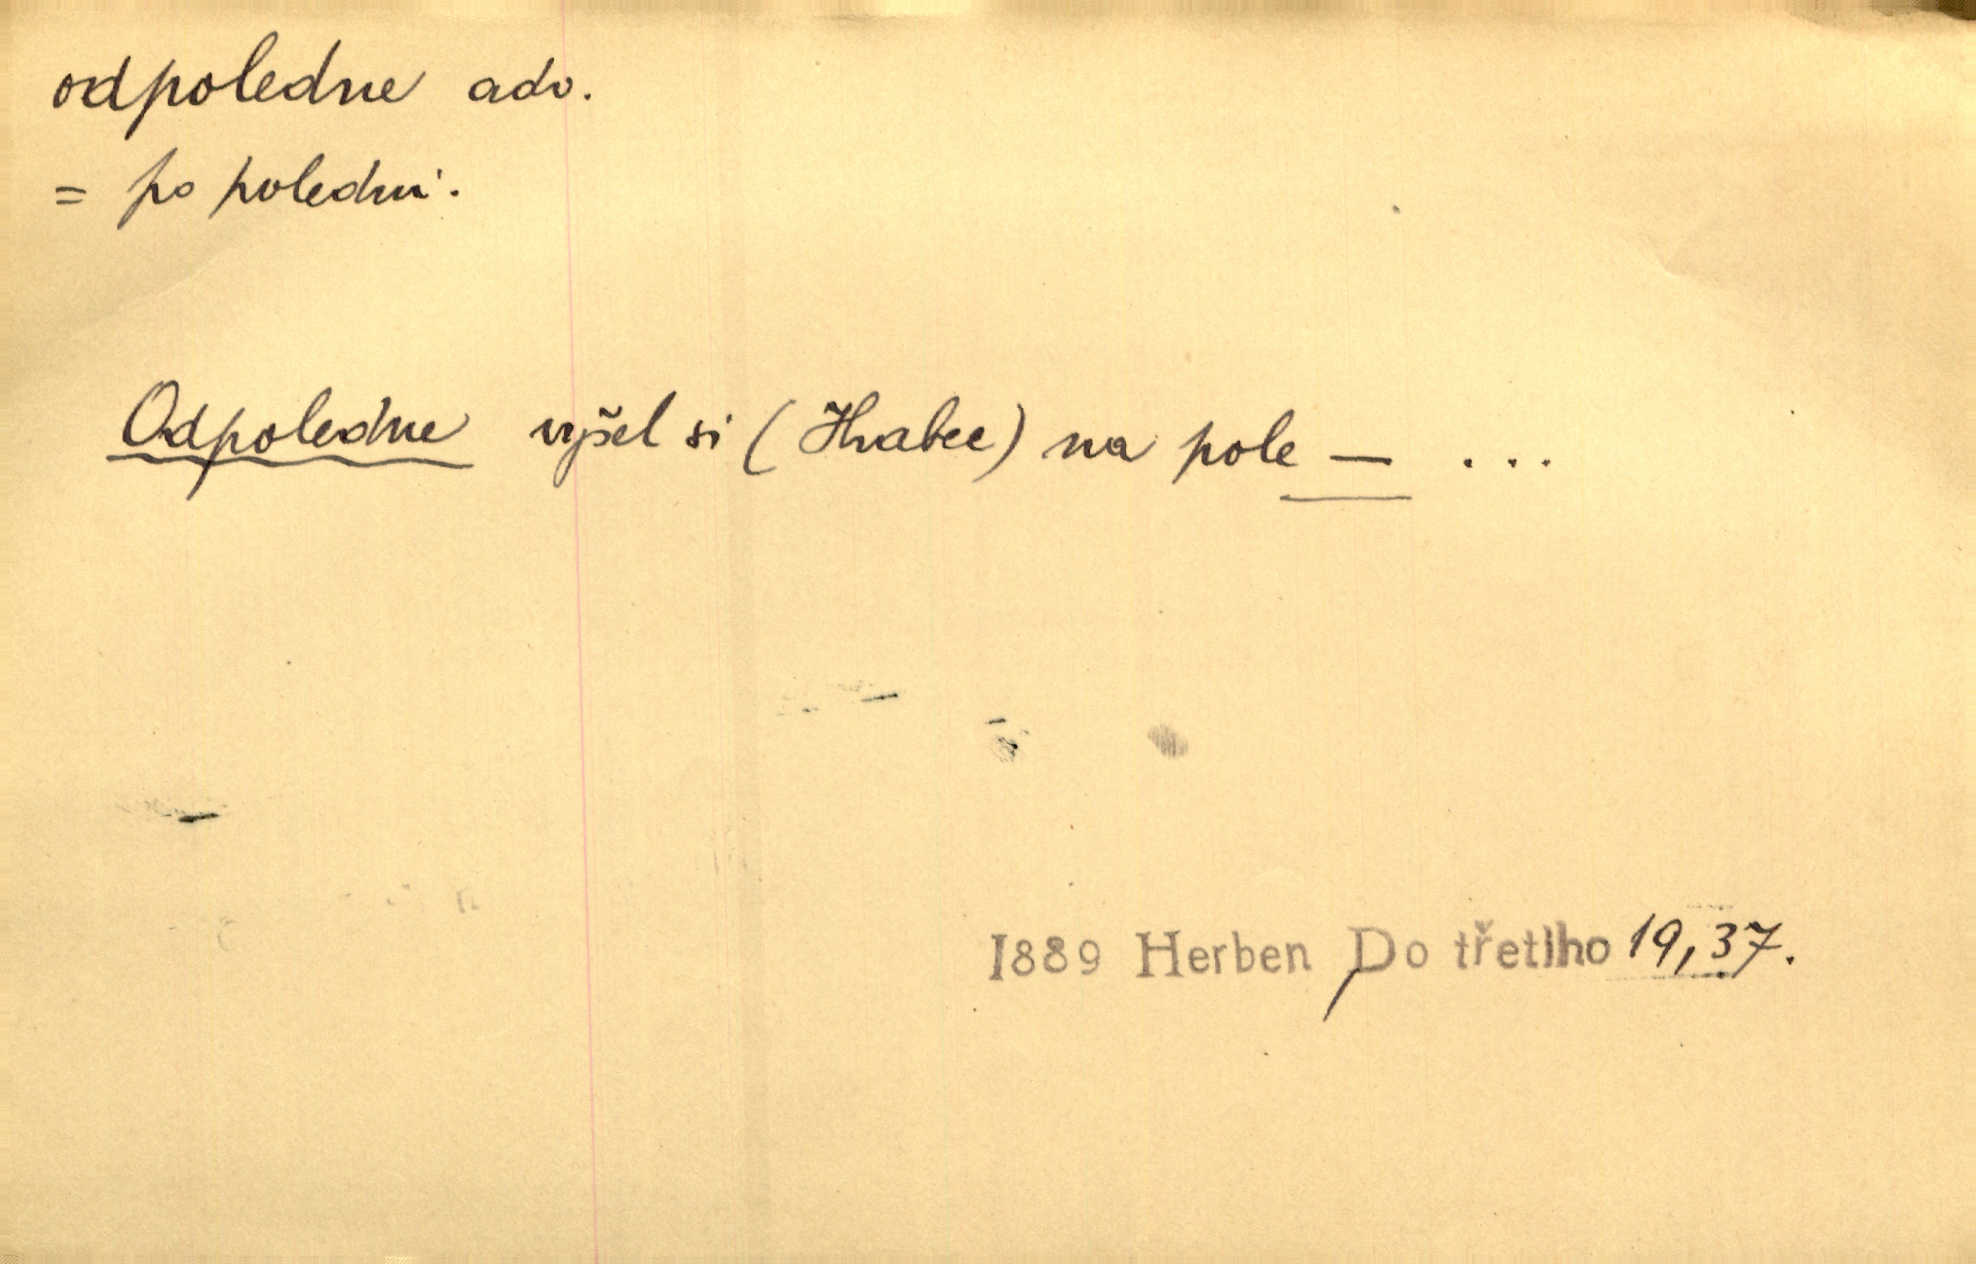 odpoledne adv.
= po poledni.
Odpoledne vyšel si (Hrabec) na pole — ...
1889 Herben Do třetího 19, 37.